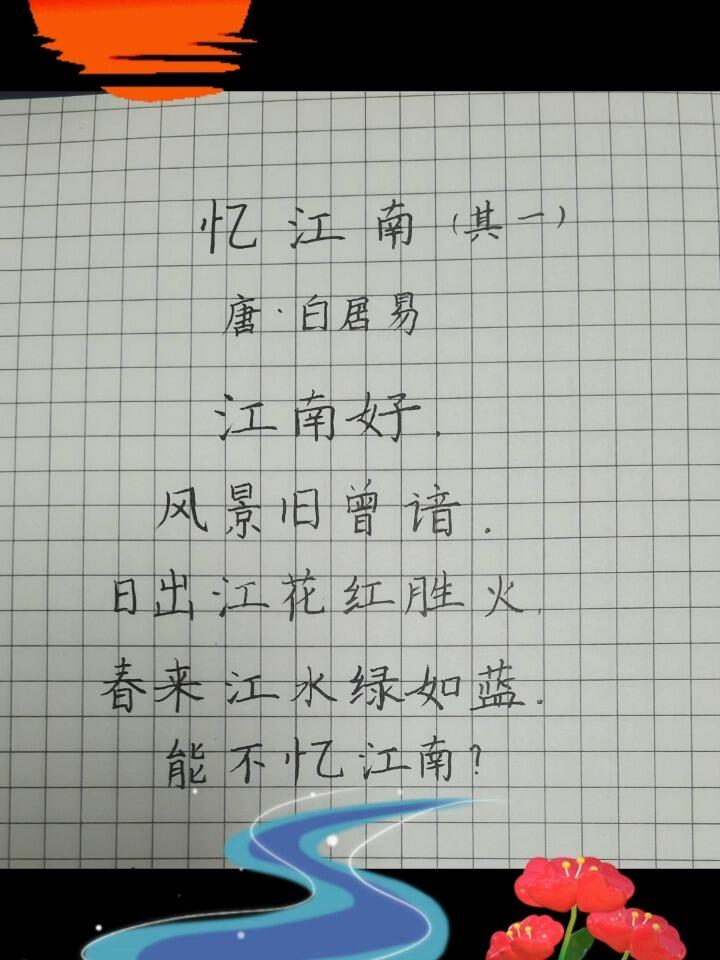 忆江南(其一)
唐·白居易
江南好,
风景旧曾谙.
日出江花红胜火,
春来江水绿如蓝.
能不忆江南?